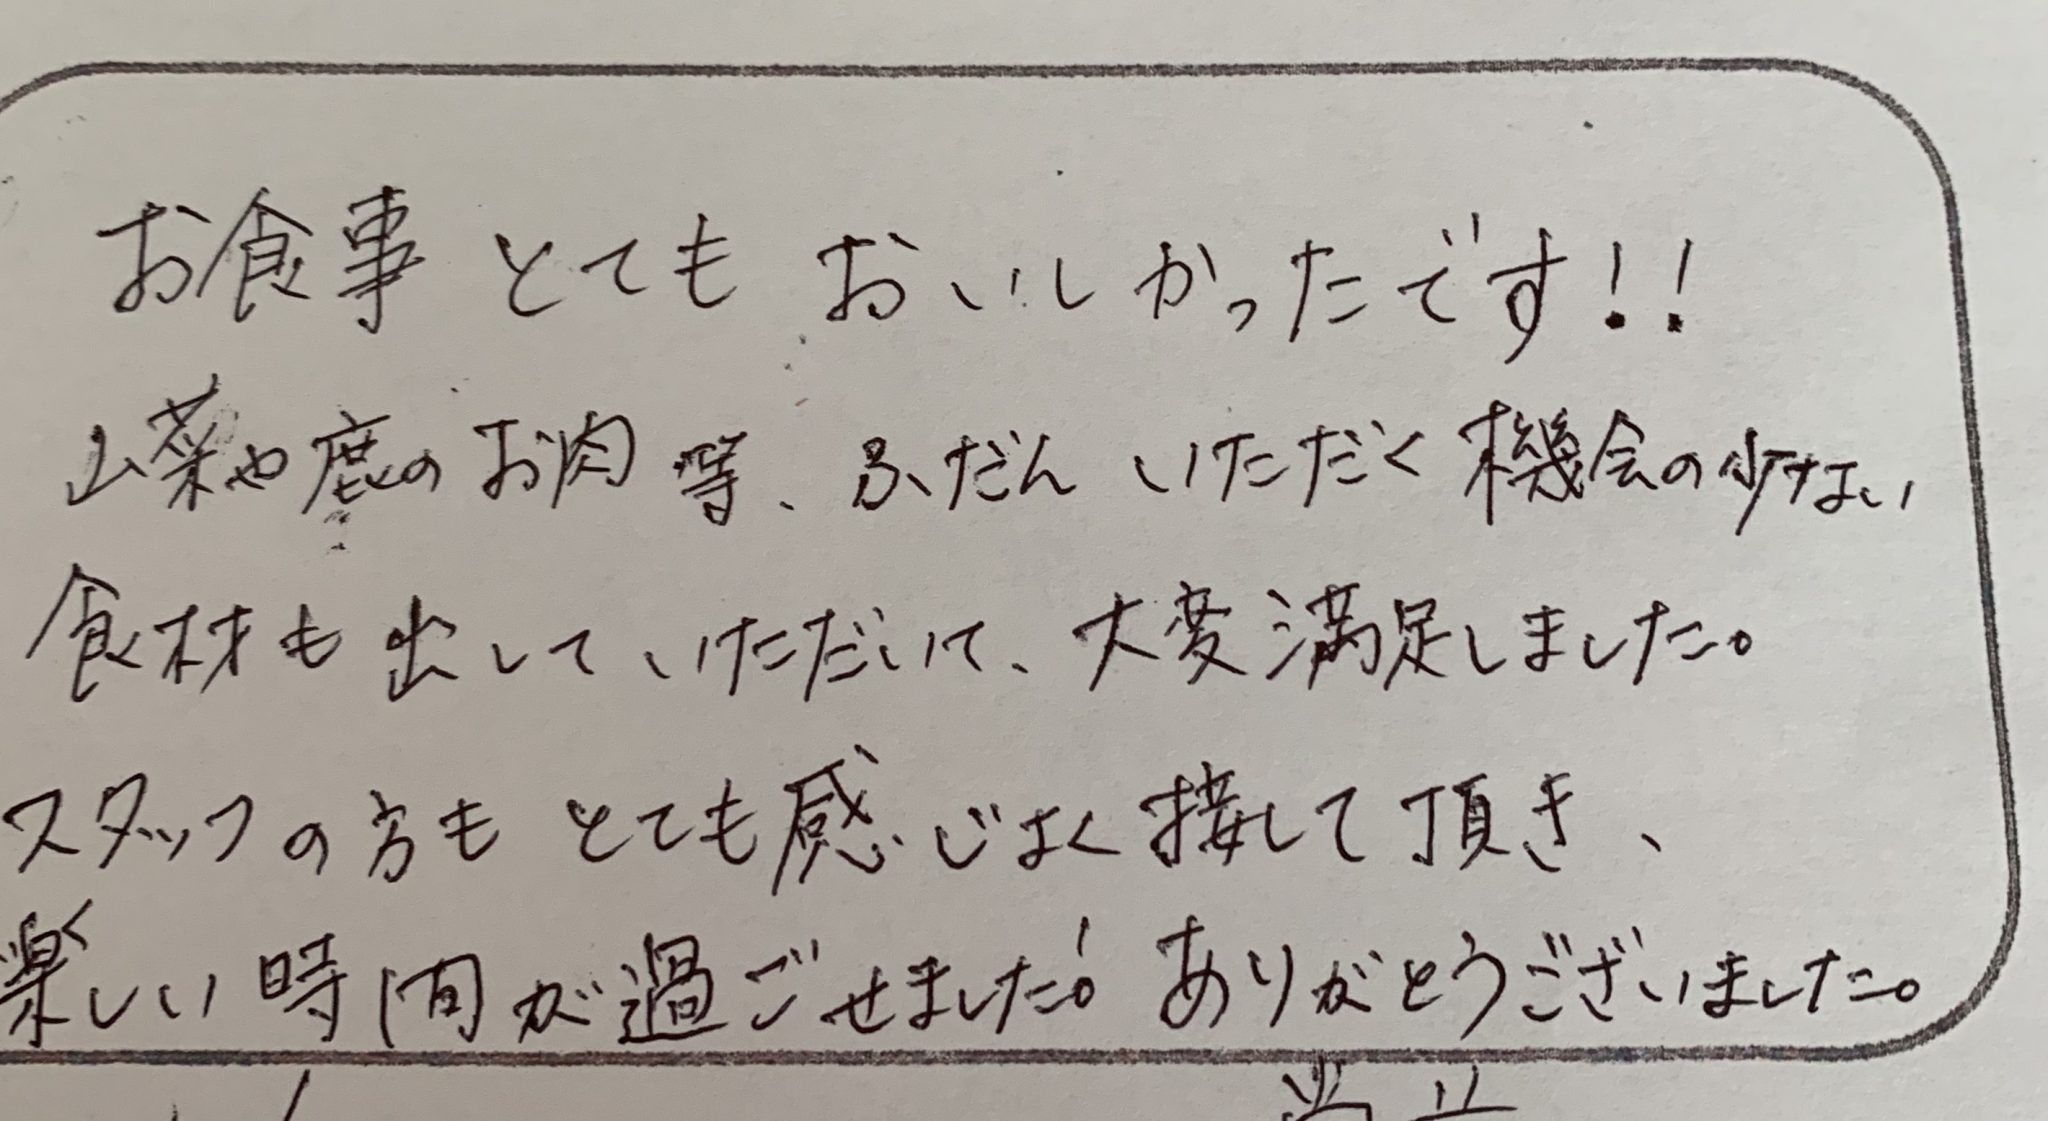 お食事とてもおいしかったです!!
山菜や鹿のお肉等、ふだんいただく機会の少ない
食材も出していただいて、大変満足しました。
スタッフの方もとても感じよく接して頂き、
楽しい時間が過ごせました! ありがとうございました。